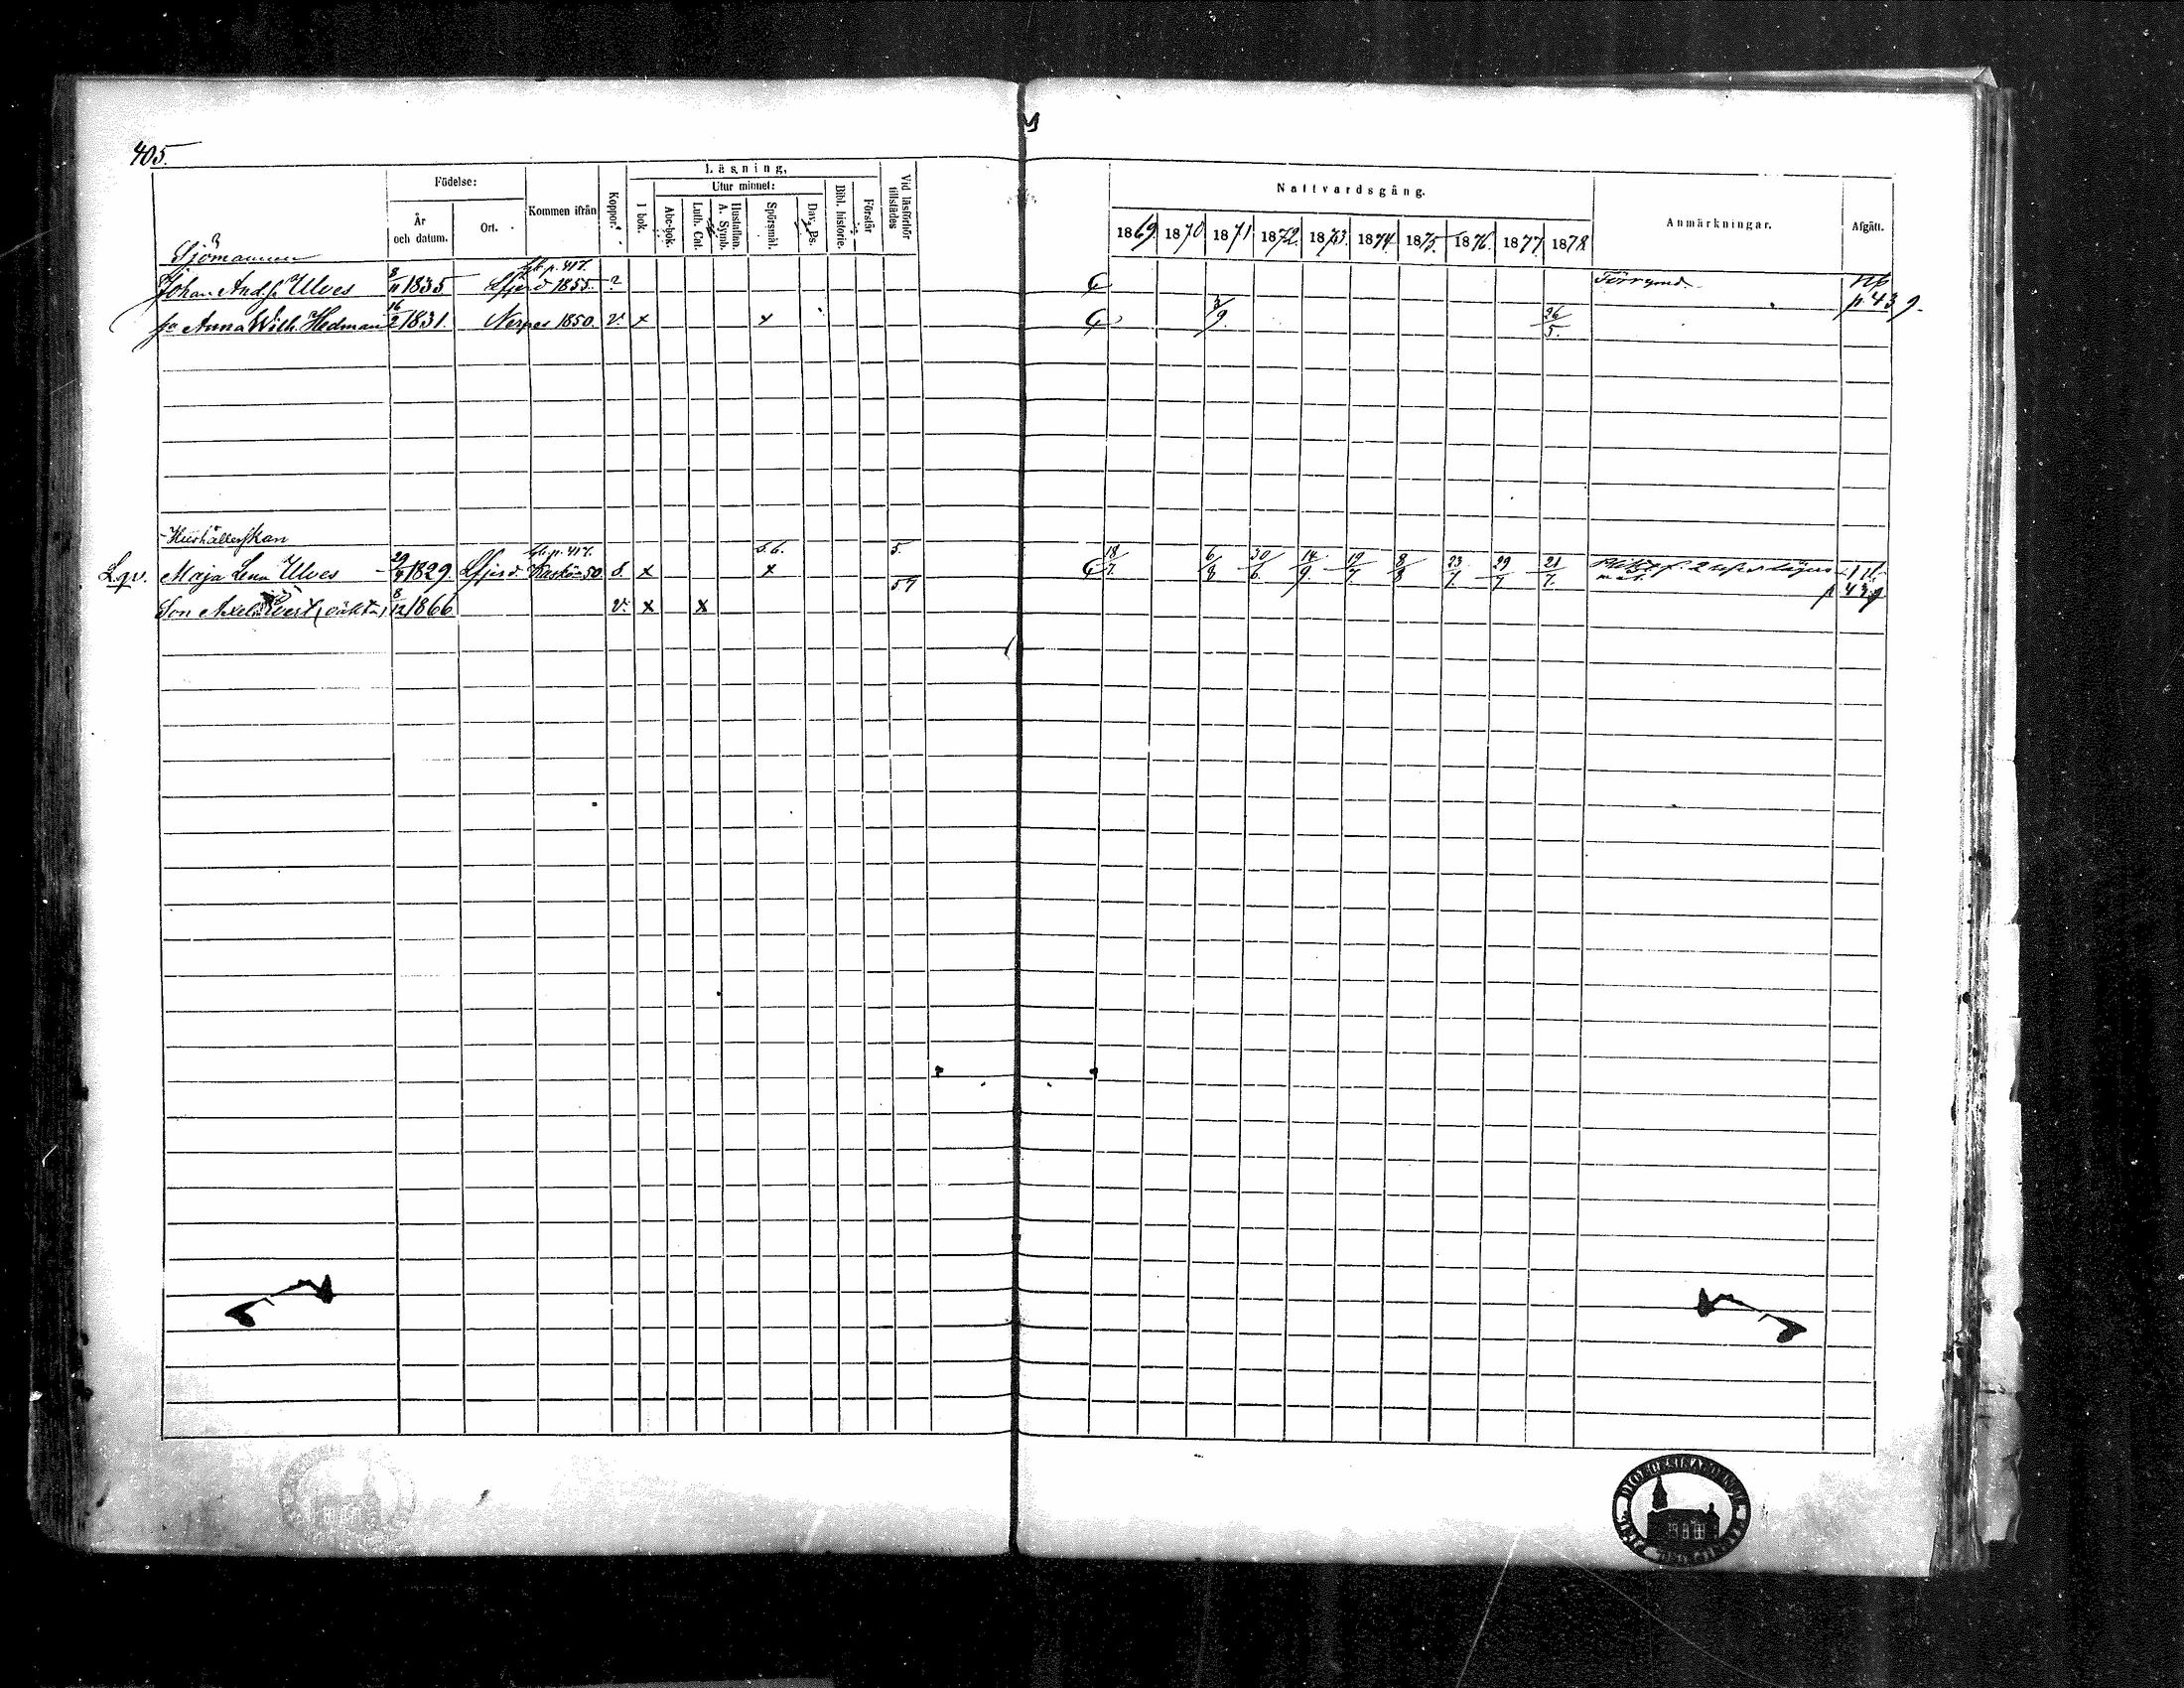 405.
Födelse:
År och datum.
Ort.
Kommen ifrån
Koppor.
Läsning,
I bok.
Utur minnet:
Abc-bok.
Luth. Cat.
Hustaflan. A. Symb.
Spörsmål.
Dav. Ps.
Bibl. historie.
Förstår
Vid läsförhör tillstädes
Nattvardsgång.
1869. 1870 1871 1872. 1873. 1874. 1875. 1876. 1877. 1878.
Anmärkningar.
Afgått.
Sjömannen
p. 417.
Johan And. Ulves 8/11 1835 Lfjerd 1855. ? Förrymd.
hu Anna Wilh. Hedman 16/2 1831. Nerpes 1850. v. x x 3/9. 26/5. p 439.
Hushållerskan
p. 417. 5.6. 5.
Lqv. Maja Lena Ulves 29/9 1829. Lfjerd. Kaskö 50. S. x x 57 18/7. 6/8 30/6. 14/9. 19/7. 8/8 23/7. 29/7 21/7.
Son Axel Evert (oäkta) 8/12 1866 v. x x p 439